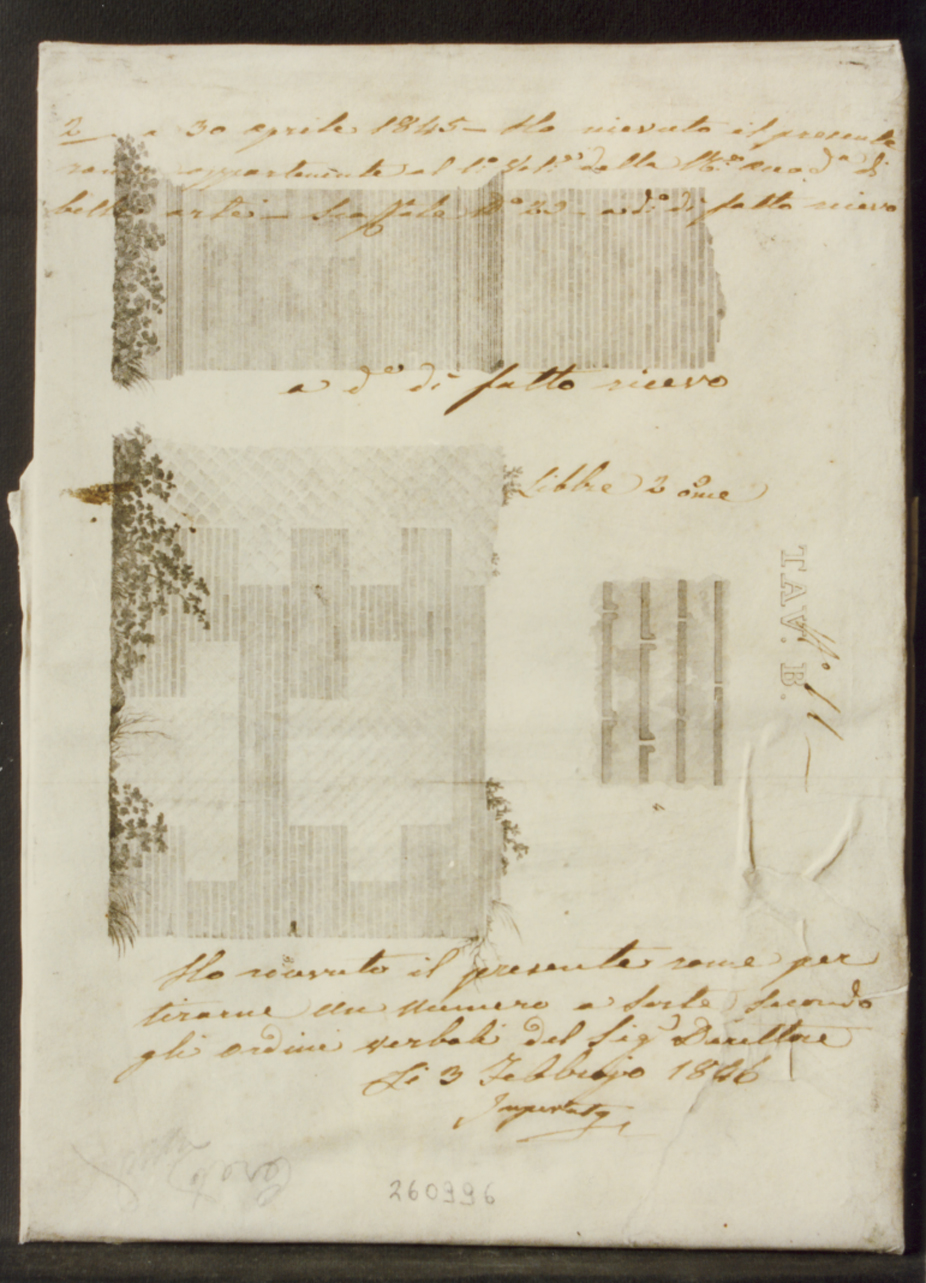 2 a 30 aprile 1845 – Ho ricevuto il presente
rame appartenente al della di
belle arti – Scaffale N.º 22 – a d.º di fatto ricevo
a d.º di fatto ricevo
Libbre 2 once
TAV. B.
N.º 11
Ho ricevuto il presente rame per
tirarne un numero a sorte secondo
gli ordini verbali del Sig.r Direttore
Li 3 Febbrajo 1846
260996